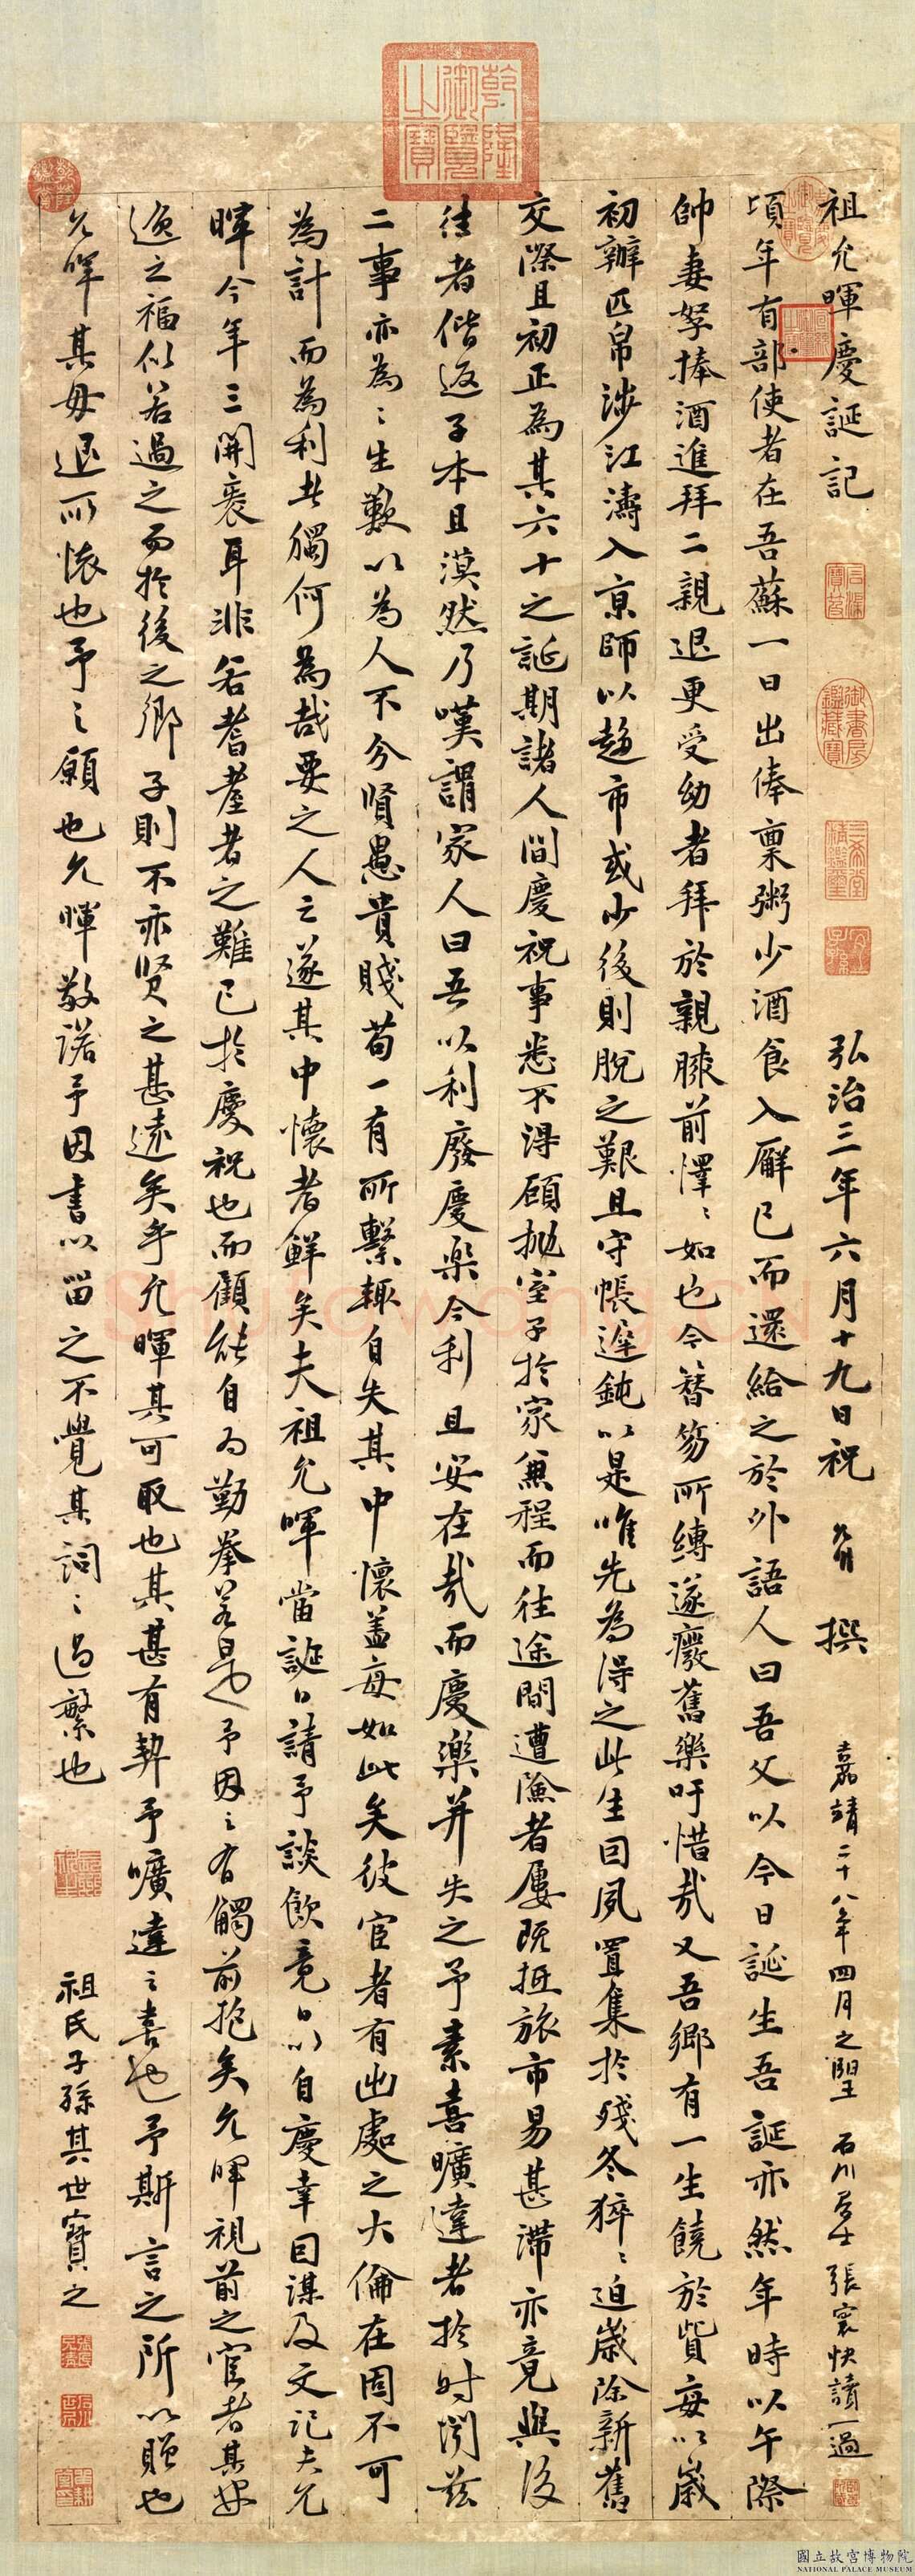 祖允暉慶誕記
弘治三年六月十九日祝 撰
嘉靖二十八年四月之望 石川居士張寰快讀一過
頃年有部使者在吾蘇一日出俸稟粥少酒食入廨已而還給之於外語人曰吾父以今日誕生吾誕亦然年時以午際
帥妻孥捧酒進拜二親退更受幼者拜於親膝前懌〻如也今簪笏所縛遂癈舊樂吁惜哉又吾鄉有一生饒於貲每以歲
初辦匹帛涉江濤入京師以趍市或少後則脫之艱且守帳遲鈍以是唯先為得之此生回夙置集於殘冬猝〻迫歲除新舊
交際且初正為其六十之誕期諸人間慶祝事悉不淂顧抛室子於家兼程而往途間遭險者屢既抵旅市易甚滯亦竟與後
往者偕返子本且漠然乃嘆謂家人曰吾以利廢慶樂今利且安在哉而慶樂并失之予素喜曠達者於時閔茲
二事亦為〻生歎以為人不分賢愚貴賤苟一有所繫輒自失其中懷盖每如此矣彼宦者有出處之大倫在固不可
為計而為利者獨何為哉要之人之遂其中懷者鮮矣夫祖允暉當誕日請予談飲竟日以自慶幸囙謀及文記夫允
暉今年三開袠耳非若耆耋者之難已於慶祝也而顧能自為勤拳若是也予因〻有觸前抱矣允暉視前之宦者其安
逸之福似若過之而於後之鄉子則不亦賢之甚遠矣乎允暉其可取也其甚有契予曠達之喜也予斯言之所以贈也
允暉其毋退所懷也予之願也允暉敬諾予因書以留之不覺其詞〻過繁也
祖氏子孫其世寶之
乾隆御覽之寶
御書房鑑藏寶
三希堂精鑑璽
宜子孫
石渠寶笈
國立故宮博物院
NATIONAL PALACE MUSEUM